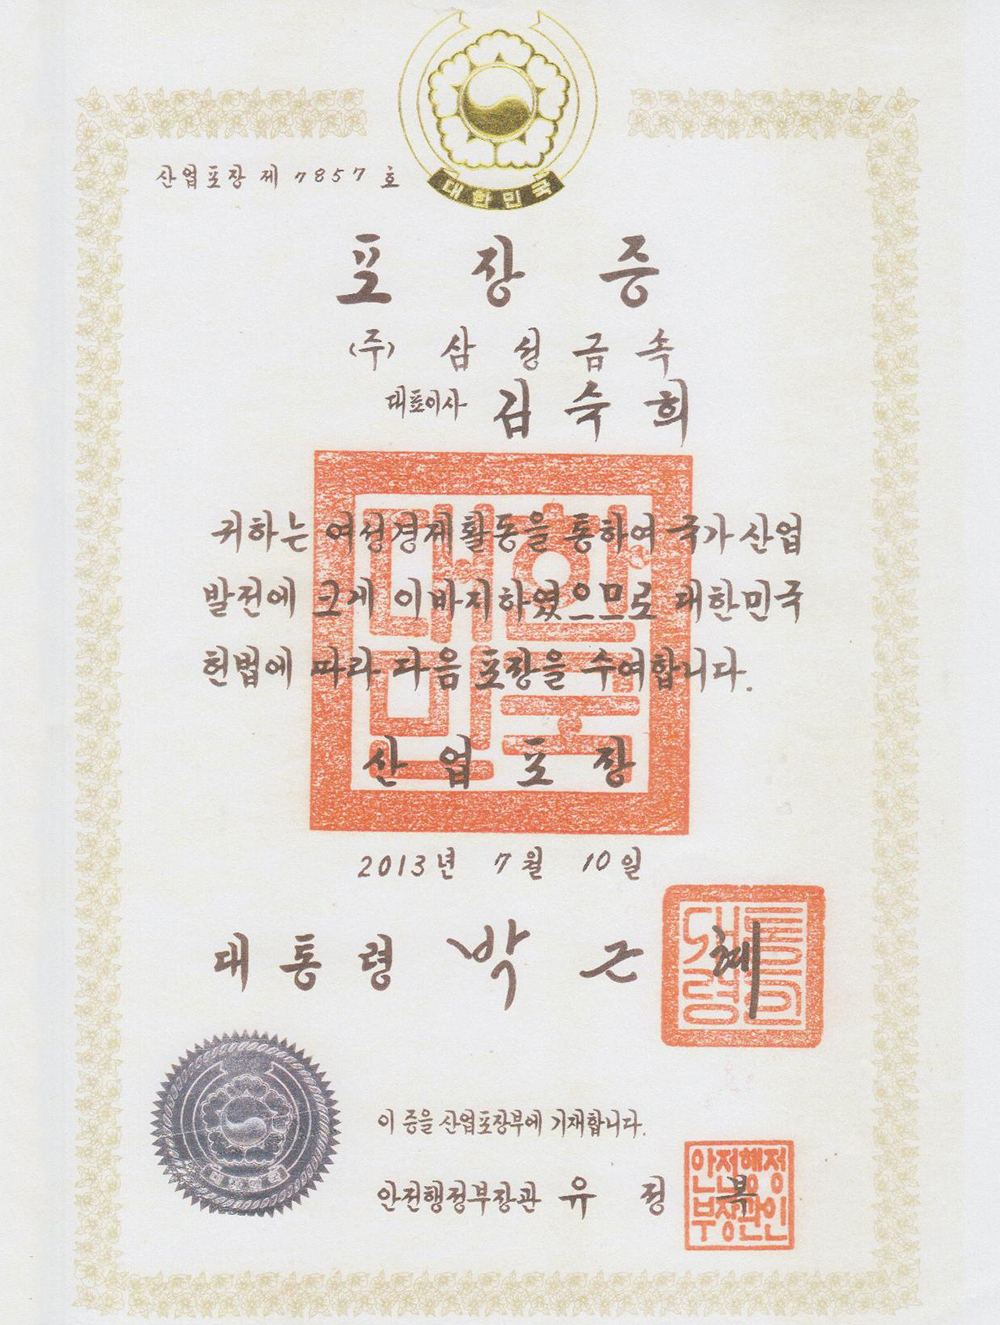 대한민국
산업포장 제 7857 호
포장증
(주) 삼성금속
대표이사 김숙희
귀하는 여성경제활동을 통하여 국가 산업
발전에 크게 이바지하였으므로 대한민국
헌법에 따라 다음 포장을 수여합니다.
산업포장
대한
민국
2013년 7월 10일
대통령 박근혜
대통령의인
이 증을 산업포장부에 기재합니다.
안전행정부장관 유정복
안전행정
부장관인
대한민국